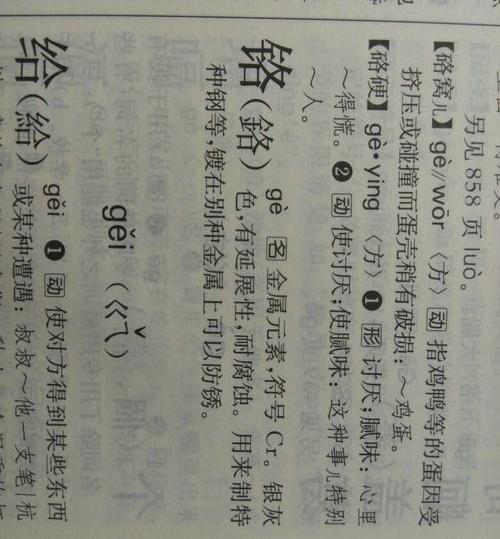 另见 858 页 luò。
【硌窝儿】gè∥wōr 〈方〉 动 指鸡鸭等的蛋因受
挤压或碰撞而蛋壳稍有破损:~鸡蛋。
【硌硬】gè·ying 〈方〉 ❶ 形 讨厌;腻味:心里
~得慌。❷ 动 使讨厌;使腻味:这种事儿特别
~人。
铬(鉻) gè 名 金属元素,符号 Cr。银灰
色,有延展性,耐腐蚀。用来制特
种钢等,镀在别种金属上可以防锈。
gěi (ㄍㄟˇ)
给(給) gěi ❶ 动 使对方得到某些东西
或某种遭遇:叔叔~他一支笔|杭